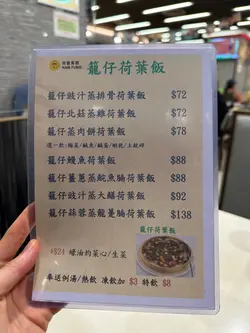 籠仔荷葉飯
籠仔豉汁蒸排骨荷葉飯 $72
籠仔北菇蒸雞荷葉飯 $72
籠仔蒸肉餅荷葉飯 $78
籠仔鰻魚荷葉飯 $88
籠仔薑蔥蒸鯇魚腩荷葉飯 $88
籠仔豉汁蒸大鱔荷葉飯 $92
籠仔蒜蓉蒸龍躉腩荷葉飯 $138
籠仔荷葉飯
+$24 蠔油灼菜心/生菜
奉送例湯/熱飲 凍飲加 $3 特飲 $8